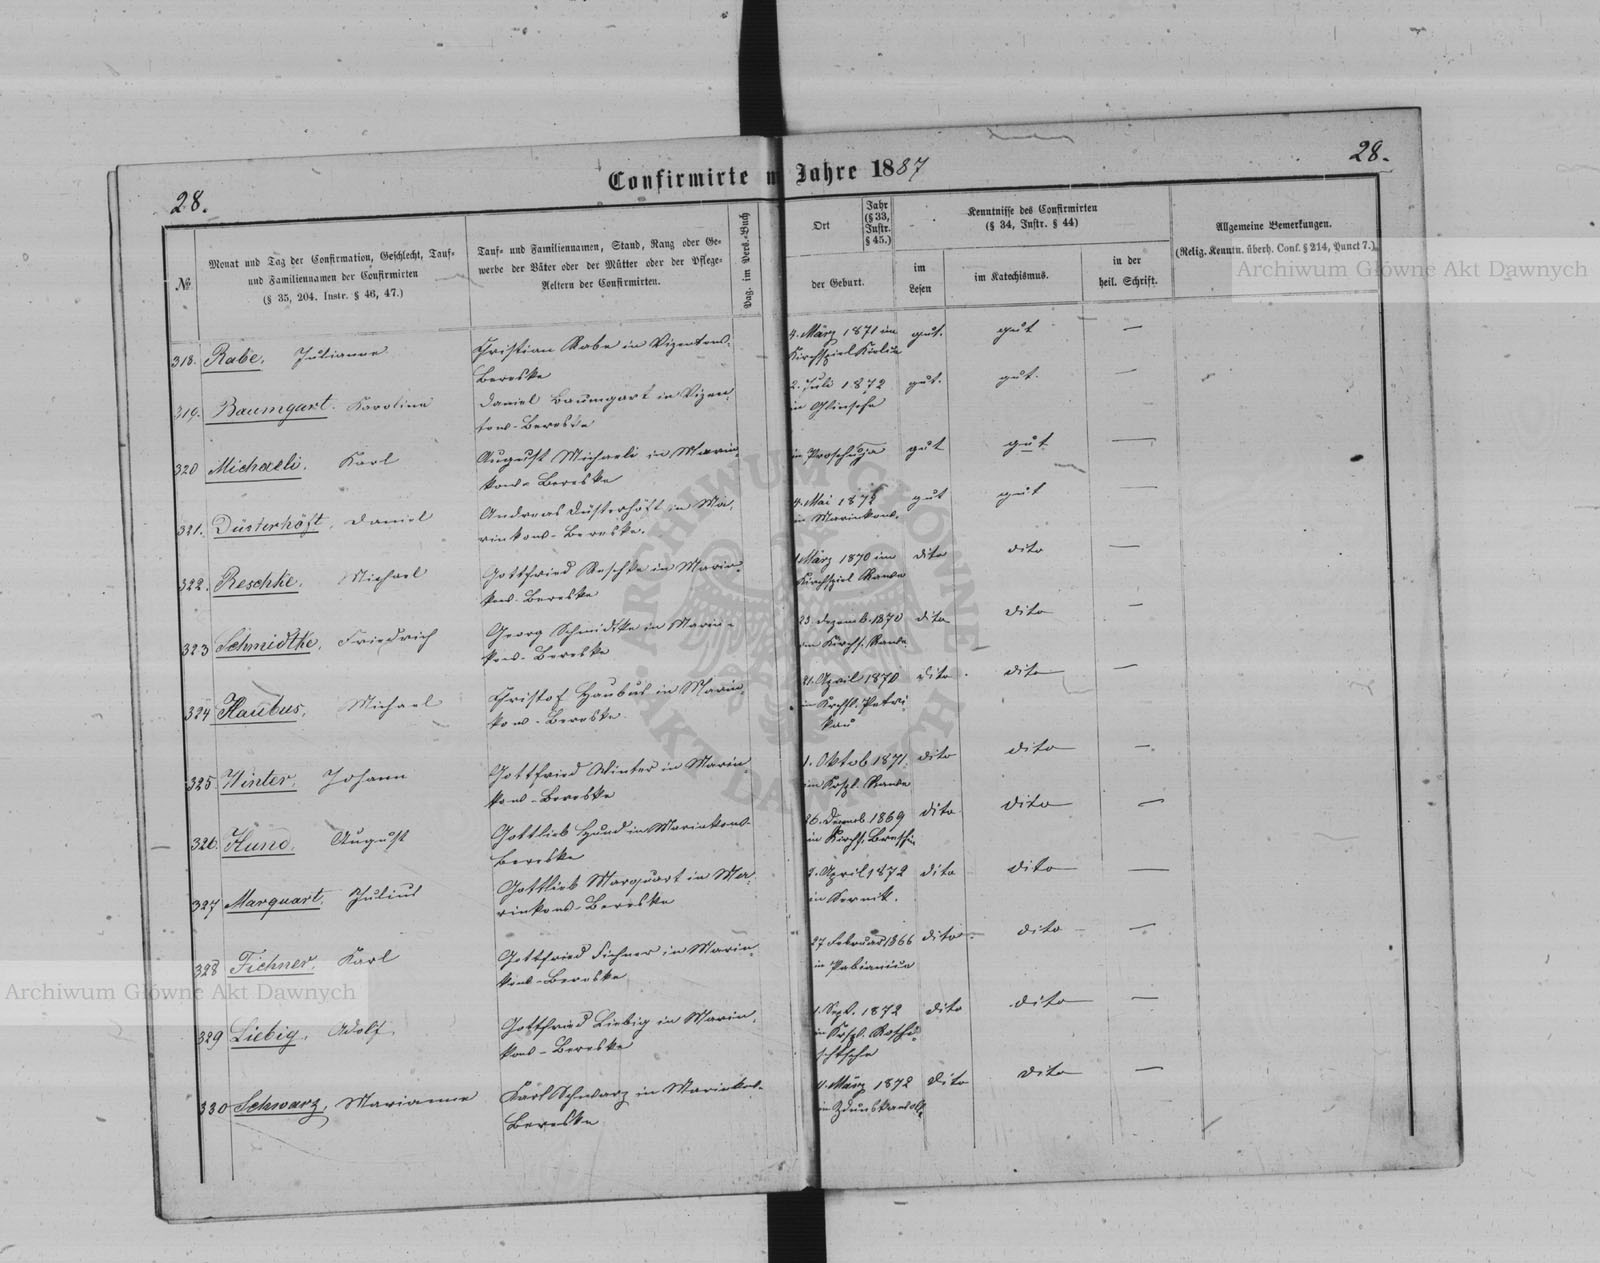 28.
28.
Confirmirte im Jahre 1887
№
Monat und Tag der Confirmation, Geschlecht, Tauf-
und Familiennamen der Confirmirten
(§ 35, 204. Instr. § 46, 47.)
Tauf- und Familiennamen, Stand, Rang oder Ge-
werbe der Väter oder der Mütter oder der Pflege-
Aeltern der Confirmirten.
Pag. im Pers.-Buch
Ort
Jahr
(§ 33,
Instr.
§ 45.)
der Geburt.
Kenntnisse des Confirmirten
(§ 34, Instr. § 44)
im
Lesen
im Katechismus.
in der
heil. Schrift.
Allgemeine Bemerkungen.
(Relig. Kenntn. überh. Conf. § 214, Punct 7.)
Archiwum Główne Akt Dawnych
318. Rabe, Julianne
Christian Rabe in
Bereske
4. März 1871 im
Kirchspiel
gut. gut —
319. Baumgart. Karolina
Daniel Baumgart in
Bereske
2. Juli 1872
in
gut. gut. —
320 Michaeli. Karl
August Michaeli in Marin-
kow-Bereske
in
gut gut —
321. Düsterhöft, Daniel
Andreas Düsterhöft in Ma-
rinkow-Bereske.
4. Mai 1872
in Marinkow.
gut gut —
322. Reschke, Michael
Gottfried Reschke in Marin-
kow-Bereske
1 März 1870 im
Kirchspiel Rawa
dito dito —
323 Schmidtke, Friedrich
Georg Schmidtke in Marin-
kow-Bereske
23. Dezemb. 1870
im Kirchs. Rawa
dito dito —
324 Haubus, Michael
Christof Haubus in Marin-
kow-Bereske
21. April 1870
in Kirchsp. Petri-
kau
dito dito —
325. Winter, Johann
Gottfried Winter in Marin-
kow-Bereske
1. Oktob. 1871.
im Krspl. Rawa
dito dito —
326. Hund, August
Gottlieb Hund in Marinkow-
Bereske
26. Dezemb 1869
in Kirchs.
dito dito —
327 Marquart, Julius
Gottlieb Marquart in Ma-
rinkow-Bereske
2. April 1872
in
dito dito —
328 Fichner, Karl
Gottfried Fichner in Marin-
kow-Bereske
27 Februar 1866
in Pabianice
dito dito —
Archiwum Główne Akt Dawnych
329 Liebig, Adolf
Gottfried Liebig in Marin-
kow-Bereske
1. Sept. 1872
in Krspl.
dito dito —
330 Schwarz, Marianne
Karl Schwarz in Marinkow-
Bereske
4. März 1872
in Zdunskawola
dito dito —
ARCHIWUM GŁÓWNE AKT DAWNYCH